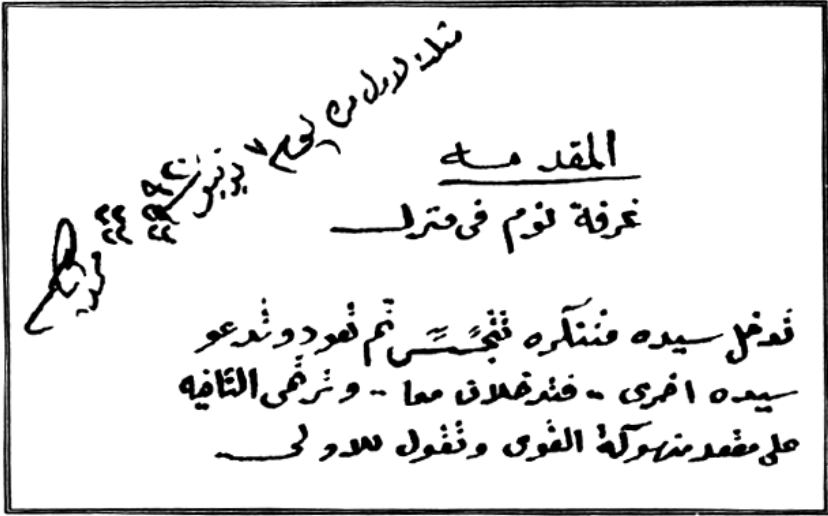 مثلت لاول مره يوم ٧ يونيو
المقدمه
غرفة نوم فى منزل
تدخل سيده متنكره تتجسس ثم تعود وتدعو
سيده اخرى .. فتدخلان معا .. وترتمى الثانيه
على مقعد منهوكة القوى وتقول للاولى